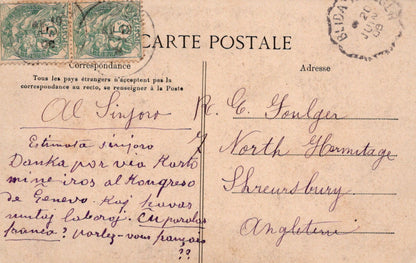 CARTE POSTALE
Correspondance
Tous les pays étrangers n'acceptent pas la
correspondance au recto, se renseigner à la Poste
Adresse
Al Sinjoro
Estimata sinjoro
Danka por via Karto
mi ne iros al Kongreso
de Genevo. Kaj havas
multaj laboraj. Cu parolas
franca? parlez-vous français
??
R. C. Foulger
7 North Hermitage
Shreursbury
Angleterre
BLIDA
20
JUIN